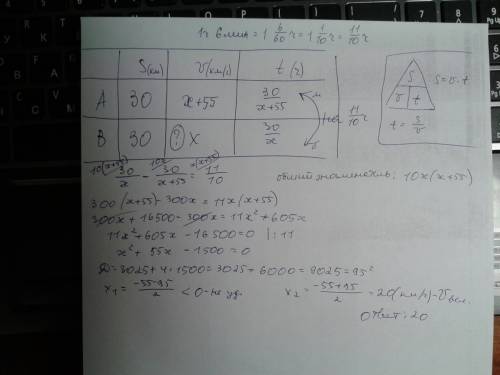 1ч 6мин = 1 6/60 ч = 1 1/10 ч = 11/10 ч
S(км) v(км/ч) t(ч)
A 30 x+55 30/(x+55) м
B 30 ? x 30/x б
на 11/10 ч
S
v t
S = v · t
t = S/v
10(x+55) 10x x(x+55)
30/x - 30/(x+55) = 11/10
общий знаменатель: 10x(x+55)
300(x+55) - 300x = 11x(x+55)
300x + 16500 - 300x = 11x² + 605x
11x² + 605x - 16500 = 0 |:11
x² + 55x - 1500 = 0
D = 3025 + 4·1500 = 3025 + 6000 = 9025 = 95²
x₁ = (-55-95)/2 < 0 - не уд.
x₂ = (-55+95)/2 = 20(км/ч) - v вел.
Ответ: 20